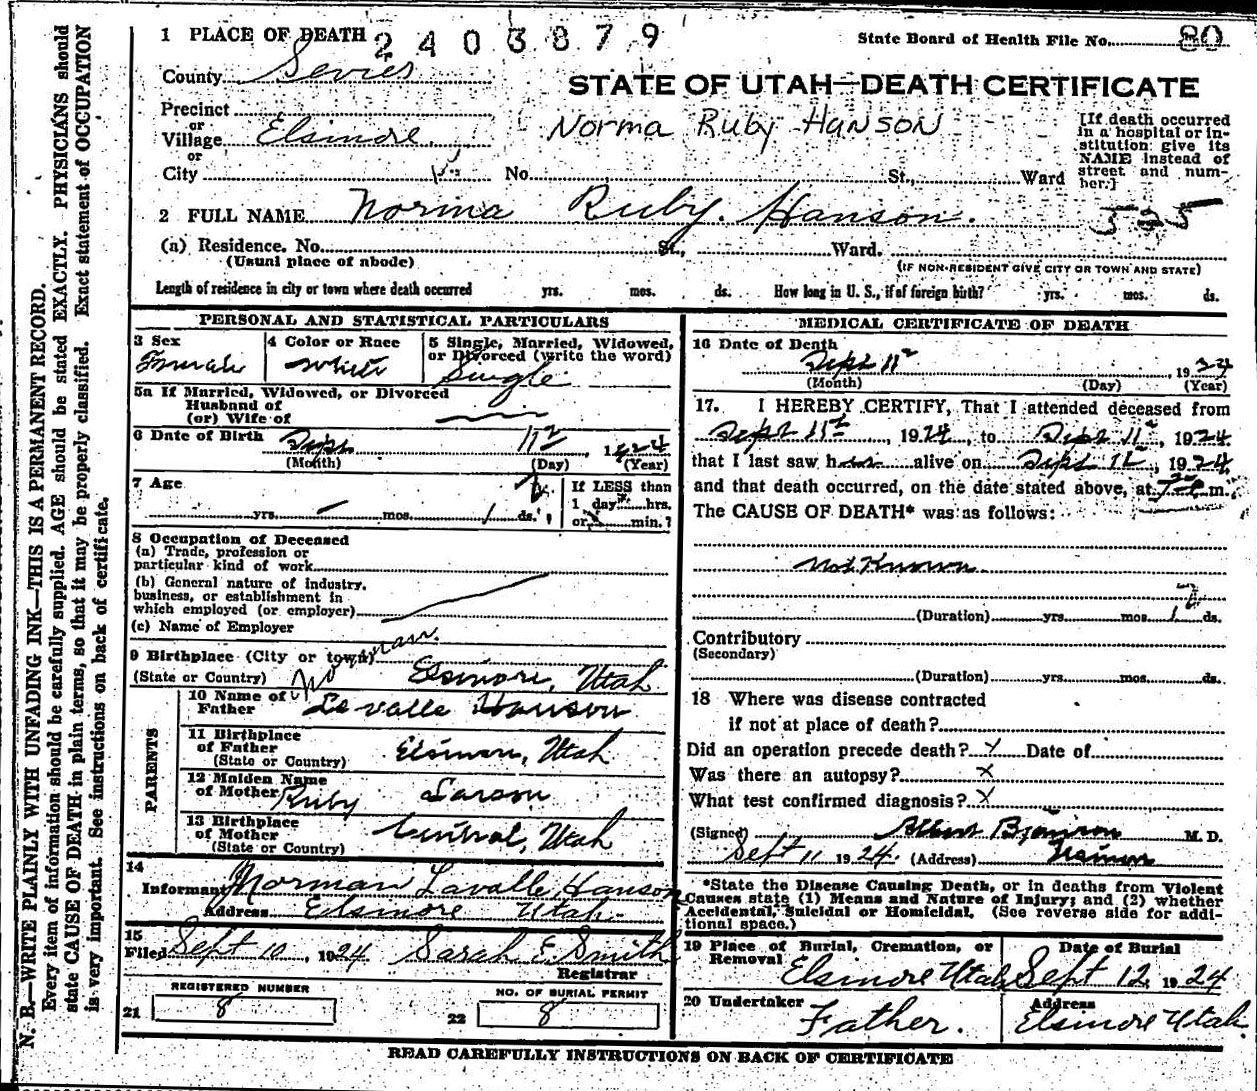 1 PLACE OF DEATH 2403879
State Board of Health File No. 80
County Sevier
STATE OF UTAH—DEATH CERTIFICATE
Precinct
or
Village Elsinore
Norma Ruby Hanson
[If death occurred in a hospital or in-
stitution give its
NAME instead of
street and num-
ber.]
or
City No. St., Ward
2 FULL NAME Norma Ruby Hanson.
525
(a) Residence. No. St., Ward.
(Usual place of abode) (IF NON-RESIDENT GIVE CITY OR TOWN AND STATE)
Length of residence in city or town where death occurred yrs. mos. ds. How long in U. S., if of foreign birth? yrs. mos. ds.
PERSONAL AND STATISTICAL PARTICULARS
3 Sex 4 Color or Race 5 Single, Married, Widowed,
or Divorced (write the word)
Female White Single
5a If Married, Widowed, or Divorced
Husband of
(or) Wife of
6 Date of Birth Sept 11 1924
(Month) (Day) (Year)
7 Age If LESS than
1 day hrs.
yrs. mos. 1 ds. or min.?
8 Occupation of Deceased
(a) Trade, profession or
particular kind of work
(b) General nature of industry,
business, or establishment in
which employed (or employer)
(c) Name of Employer
9 Birthplace (City or town)
(State or Country) Elsinore, Utah
Norman
PARENTS
10 Name of
Father Le valle Hanson
11 Birthplace
of Father Elsinore, Utah
(State or Country)
12 Maiden Name
of Mother Ruby Larson
13 Birthplace
of Mother Central, Utah
(State or Country)
14
Informant Norman Lavalle Hanson
Address Elsinore Utah
15
Filed Sept 10, 1924 Sarah E. Smith
Registrar
REGISTERED NUMBER NO. OF BURIAL PERMIT
21 8 22 8
MEDICAL CERTIFICATE OF DEATH
16 Date of Death
Sept 11 1924
(Month) (Day) (Year)
17. I HEREBY CERTIFY, That I attended deceased from
Sept 11, 1924, to Sept 11, 1924
that I last saw her alive on Sept 11, 1924
and that death occurred, on the date stated above, at m.
The CAUSE OF DEATH* was as follows:
Not Known
(Duration) yrs. mos. 1 ds.
Contributory
(Secondary)
(Duration) yrs. mos. ds.
18 Where was disease contracted
if not at place of death?
Did an operation precede death? X Date of
Was there an autopsy? X
What test confirmed diagnosis? X
(Signed) Albert M. D.
Sept 11 1924. (Address) Elsinore
*State the Disease Causing Death, or in deaths from Violent
Causes state (1) Means and Nature of Injury; and (2) whether
Accidental, Suicidal or Homicidal. (See reverse side for addi-
tional space.)
19 Place of Burial, Cremation, or
Removal Date of Burial
Elsinore Utah Sept 12, 1924
20 Undertaker Address
Father. Elsinore Utah
READ CAREFULLY INSTRUCTIONS ON BACK OF CERTIFICATE
N. B.—WRITE PLAINLY WITH UNFADING INK—THIS IS A PERMANENT RECORD.
Every item of information should be carefully supplied. AGE should be stated EXACTLY. PHYSICIANS should
state CAUSE OF DEATH in plain terms, so that it may be properly classified. Exact statement of OCCUPATION
is very important. See instructions on back of certificate.